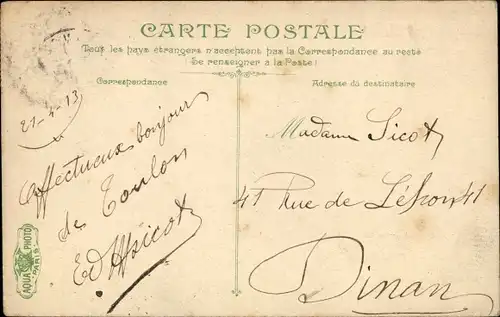 CARTE POSTALE
Tous les pays étrangers n'acceptent pas la Correspondance au recto
(Se renseigner à la Poste)
Correspondance
Adresse du destinataire
21-4-13
Affectueux bonjour
de Toulon
AQUA PHOTO
PARIS
Madame Sicot
41 Rue de 41
Dinan